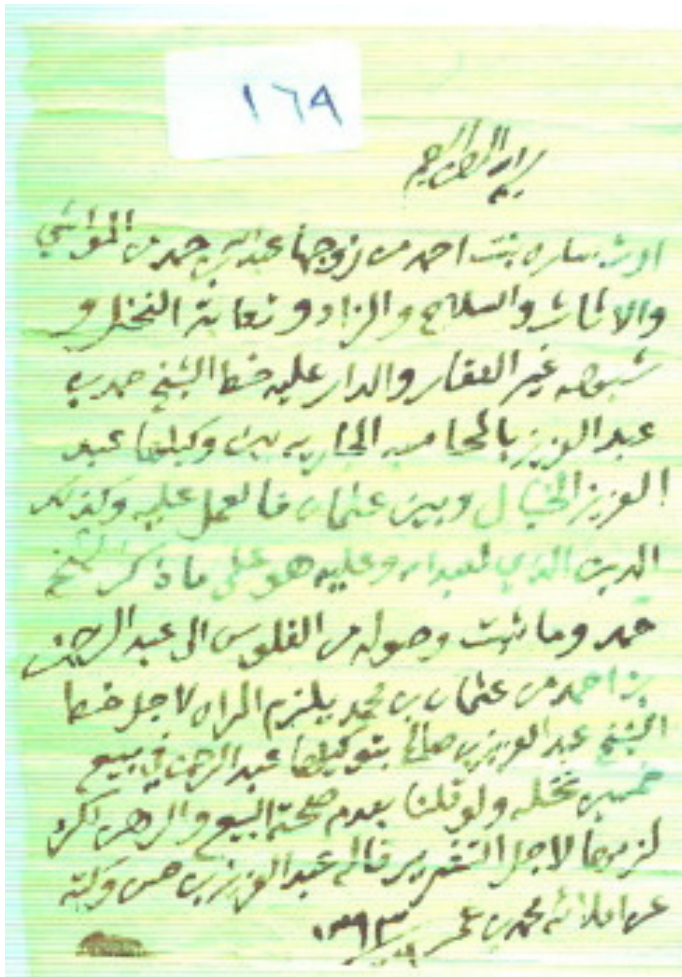 ١٦٩
بسم الله الرحمن الرحيم
ارث ساره بنت احمد من زوجها عبدالله بن حمد من المواشي
والاثاث والسلاح والزاد ونعاية النخل و
شبهه غير العقار والدار عليه خط الشيخ حمد بن
عبد العزيز بالمحاسبه الجاريه بين وكيلها عبد
العزيز الخيال وبين عثمان فالعمل عليه وكذلك
الدين الذي لعبدالله وعليه هو على ما ذكر الشيخ
حمد وما ثبت وصوله من الفلوس الى عبد الرحمن
بن احمد من عثمان بن محمد يلزم المراه لاجل خط
الشيخ عبد العزيز بن صالح بتوكيلها عبد الرحمن في بيع
خمسين نخله ولو قلنا بعدم صحة البيع والرهن
لزمها لاجل التغرير قاله عبد العزيز بن حسن وكتبه
عن املائه محمد بن عمر